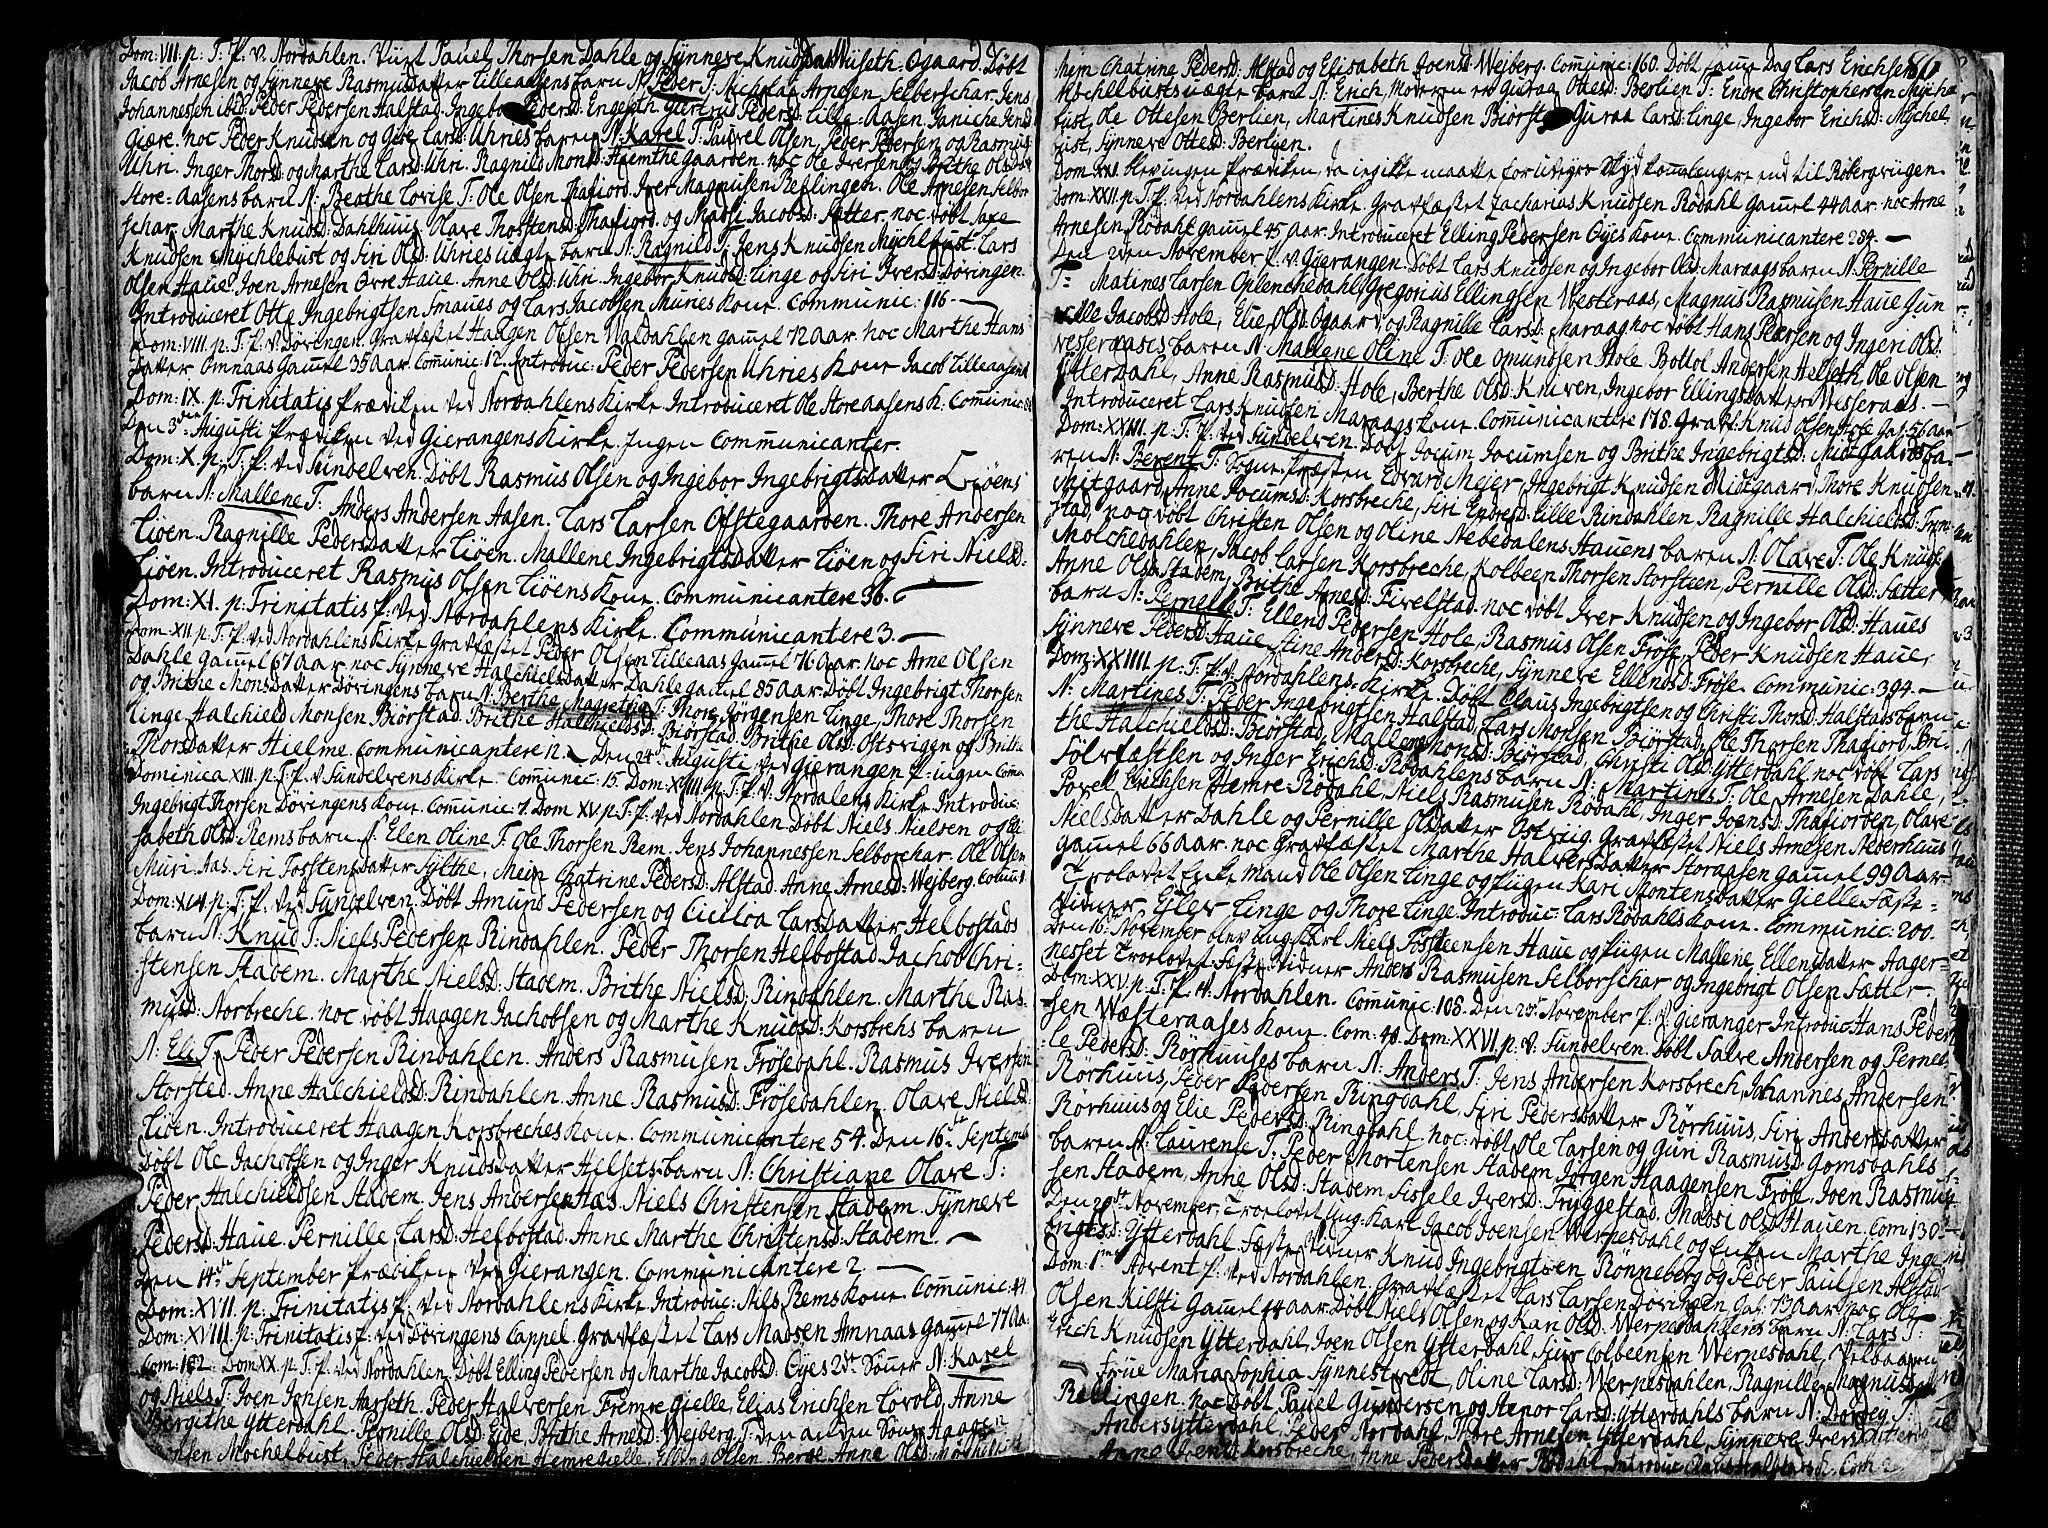 Dom: VII. p. T. P. v. Nordahlen. Viet Pauel Thorsen Dahle og Synneve Knudsdatter Ogaard. Døbt
Jacob Arnesen og Synneve Rasmusdatter Lilleaasens barn N. Peder T. Nicholai Arnesen Selberschar. Jens
Johannessen ibid. Peder Pedersen Halstad. Ingebor Pedersd: Engeseth Giertrud Pedersd: Lille-Aasen. Janiche Jensd:
Giære. noc Peder Knudsen og Giøe Larsd: Uhries barn N. Karel T. Pauvel Olsen, Peder Pedersen og Rasmus
Uhri. Inger Thorsd: og Marthe Larsd: Uhri. Ragnild Monsd: Hiemthegaarden. noc Ole Iversen og Brithe Olsdatter
Store-Aasens barn N: Berthe Lovise T: Ole Olsen Thafiord. Iver Magnusen Reflingen. Ole Arnesen Selbor
schar. Marthe Knudsd: Dahlhuus. Olave Thorstensd: Thafiord og Madsi Jacobsd: Sætter. noc døbt Saxe
Knudsen Mychlebust og Siri Olsd: Uhries uægte barn N. Ragnild T. Jens Knudsen Mychlbust. Lars
Olsen Haue. Joen Arnesen Øvre Haue. Anne Olsd: Uhri. Ingebor Knudsd: Linge og Siri Iversd: Døvingen.
Introduceret Otte Ingebrigtsen Smaues og Lars Jacobsen Munes Kone. Communic: 116.
Dom: VIII. p. T. P. v. Døvingen. Gravfæstet Haagen Olsen Waldahlen gamel 72 Aar. noc Marthe Hans
datter Omnaas Gamel 35 Aar. Comunic: 12. Introduc: Peder Pedersen Uhries Kone Jacob Lilleaasens
Dom: IX. p. Trinitatis Prædiken ved Nordahlens Kirke Introduceret Ole Store Aasens K: Comunic:
Den 3die Augusti Prædiken ved Gierangens Kirke. Ingen Communicanter.
Dom: X. p. T. P. ved Sundelven. Døbt Rasmus Olsen og Ingebor Ingebrigtsdatter Liøens
barn N: Mallene T: Anders Andersen Aasen. Lars Larsen Ofstegaarden. Thore Andersen
Liøen. Ragnille Pedersdatter Liøen. Mallene Ingebrigtsdatter Liøen og Siri Nielsd:
Liøen. Introduceret Rasmus Olsen Liøens Kone. Communicantere 36.
Dom: XI. p. Trinitatis P. ved Nordahlens Kirke. Communicantere 3.
Dom XII. p. T. P. ved Nordahlens Kirke Gravfæstet Peder Olsen Lilleaas Gamel 76 Aar. noc Arne Olsen
Dahle gamel 67 Aar. noc Synneve Halchieldsdatter Dahle gamel 85 Aar. Døbt Ingebrigt Thorsen
og Brithe Monsdatter Døvingens barn N. Berthe Magretha T: Thore Jørgensen Linge, Thore Thorsen
Linge. Halchield Monsen Biørstad. Brithe Halchieldsd: Biørstad. Brithe Olsd: Ostsvigen og Brithe
Thorsdatter Hielme. Communicantere 12. Den 24de Augusti ved Gierangen P. ingen Comu
Dominica XIII. p. T. P. v. Sundelvens Kirke. Comunic: 15. Dom: XIIII. p. T. P. v. Nordalens Kirke Introduc:
Ingebrigt Thorsen Døvingens Kone. Comunic: 7. Dom XV. p. T. P. ved Nordahlen Døbt Niels Nielsen og Eli
sabeth Olsd: Rems barn N: Elen Oline T. Ole Thorsen Rem. Jens Johannessen Selborchar. Ole Olsen
Muri Aas. Siri Tostensdatter Sylthe, Mein Chatrine Pedersd: Alstad. Anne Arnesd: Wejberg. Comuni
Dom: XVI. p. T. P. ved Sundelven. Døbt Amund Pedersen og Cicilia Larsdatter Helbostads
barn N: Knud T: Niels Pedersen Rindahlen. Peder Thorsen Helbostad. Jachob Chri-
stensen Stadem. Marthe Nielsd: Stadem. Brithe Nielsd: Rindahlen. Marthe Ras-
musd: Norbreche. noc døbt Haagen Jachobsen og Marthe Knudsd: Korsbrechs barn
N: Eli T. Peder Pedersen Rindahlen. Anders Rasmusen Frøsedahl. Rasmus Iversen
Storsted. Anne Halchieldsd: Rindahlen. Anne Rasmusd: Frøsedahlen. Olave Nielsd:
Liøen. Introduceret Haagen Korsbreches Kone. Communicantere 54. Den 16de Septemb:
Døbt Ole Jachobsen og Inger Knudsdatter Helsets barn N: Christiane Olave T:
Peder Halchieldsen Stadem. Jens Andersen Aas. Niels Christensen Stadem. Synneve
Pedersd: Haue. Pernille Larsd: Helbostad. Anne Marthe Christensd: Stadem.
Den 14de September Prædiken ved Gierangen. Communicantere 2.
Dom: XVII. p. Trinitatis P. ved Nordahlens Kirke Introduc: Niels Rems Kone. Comunic: 44
Dom: XVIII. p. Trinitatis P. ved Døvingens Cappel Gravfæstet Lars Madsen Amnaas gamel 77 Aa:
Com: 182. Dom XX. p. T. P. ved Nordahlen. Døbt Elling Pedersen og Marthe Jacobsd: Øyes 2de Sønner N. Karel
og Niels T: Joen Johsen Aarseth. Peder Halversen Fremre Gielle, Elias Erichsen Løvold, Anne
Bergithe Ytterdahl. Pernille Olsd: Eide, Brithe Arnesd: Wejberg. T. den anden Søns Haagen
Mochelbust, Peder Halchieldsen Hemre Gielle, Olsen Berge, Anne Olsd:
80
hejm Chatrine Pedersd: Alstad og Elisabeth Joensd: Wejberg. Comunic: 160. Døbt samme Dag Lars Erichsen
Mochelbusts uægte barn N. Erich, Moderen er Guraa Ottesd: Berlien T: Endre Christophersen Myche
bust, Ole Ottesen Berlien, Martines Knudsen Biørstad Guraa Larsd: Linge, Ingebor Erichsd: Mychel
bust, Synneve Ottesd: Berlien.
Dom XXI. blev ingen Prædiken, da jeg ikke maatte for udygr Skyd komme lengere end til Robergvugen.
Dom: XXII. p. T. P. ved Nordahlens Kirke. Gravfæstet Zacharias Knudsen Rødahl Gamel 44 Aar. noc Arne
Arnesen Rødahl gamel 45 Aar. Introduceret Elling Pedersen Øyes Kone. Communicantere 284.
Den 2den November P. v. Gierangen. Døbt Lars Knudsen og Ingebor Olsd: Maraags barn N: Pernille
T: Matines Larsen Oplenchedahl, Gregorius Ellingsen Westeraas, Magnus Rasmusen Haue Gun
nelle Jacobsd: Hole, Elie Olsd: Ogaard og Ragnille Larsd: Maraag noc døbt Hans Pedersen og Ingeri Olsd:
Vesteraases barn N: Mallene Oline T: Ole Omundsen Hole. Bottol Andersen Helseth, Ole Olsen
Ytterdahl, Anne Rasmusd: Hole, Berthe Olsd: Kniven, Ingebor Ellingsdatter Vesseraas.
Introduceret Lars Knudsen Maraags Kone. Communicantere 178. Gravf: Knud Olsen Hole Gal: 56 Aar
Dom: XXIII. p. T. P. ved Sundelven. Døbt Jocum Jocumsen og Brithe Ingebrigtsd: Midtgaards ba-
ren N: Berent T: Sogne-Præsten Edvard Mejer, Ingebrigt Knudsen Midtgaard, Thore Knudsen
Mitgaard, Anne Jocumsd: Korsbreche, Siri Endresd: Lille Rindahlen. Ragnille Halchieldsd: Frem-
stad, noc døbt Christen Olsen og Oline Nebedalens Hauens baren N: Olave T: Ole Knuds:
Molchedahlen, Jacob Larsen Korsbreche, Kolbeen Thorsen Storsteen, Pernille Olsd: Sætter
Anne Olsd: Stadem, Brithe Arnesd: Fivelstad. noc døbt Iver Knudsen og Ingebor Olsd: Haues
barn N: Pernelle T: Ellend Pedersen Hole, Rasmus Olsen Frøse, Peder Knudsen Haue,
Synneve Pedersd: Haue, Stine Andersd: Korsbreche, Synneve Ellendsd: Frøse. Communic: 394.
Dom: XXIIII. p. T. P. v. Nordahlens Kirke. Døbt Claus Ingebrigtsen og Christi Thorsd: Halstads barn
N: Martines T: Peder Ingebrigtsen Halstad, Lars Monsen Biørstad, Ole Thorsen Thafiord, Bri-
the Halchieldsd: Biørstad, Mallene Monsd: Biørstad, Christi Olsd: Ytterdahl noc døbt Lars
Solvfæstsen og Inger Erichsd: Rødahlens barn N: Martinus T: Ole Arnesen Dahle,
Povel Erichsen Hemre Rødahl, Niels Rasmusen Rødahl, Inger Joensd: Thafiorden, Olave
Nielsdatter Dahle og Pernille Olsdatter Ostviig. Gravfæstet Niels Arnesen Nederhuus
gamel 66 Aar. noc Gravfæstet Marthe Halversdatter Storaasen gamel 99 Aar
Trolovet Enke mand Ole Olsen Linge og Pigen Kari Montensdatter Gielle Fæste-
vidner Ejlev Linge og Thore Linge. Introduc: Lars Rødahls Kone. Communic: 200.
Den 16. November blev ung Karl Niels Fossteensen Haue og Pigen Mallene Ellensdatter Aager-
nesset Troelovet Fæste-Vidner Anders Rasmusen Selborschar og Ingebrigt Olsen Sætter.
Dom: XXV. p. T. P. v. Nordahlen. Comunic: 108. Den 20de November P. v. Gieranger Introduc: Hans Peder-
sen Wæsteraases Kone. Com: 40 Dom: XXVI. p. v. Sundelven. Døbt Salve Andersen og Pernel
le Pedersd: Rørhuuses barn N: Anders T: Jens Andersen Korsbrech, Johannes Andersen
Rørhuus, Peder Pedersen Ringdahl, Siri Pedersdatter Rørhuus, Siri Andersdatter
Rørhuus og Elie Pedersd: Ringdahl. noc døbt Ole Larsen og Gun Rasmusd: Gomsdahls
baren N: Laurense T: Peder Mortensen Stadem, Jørgen Haagensen Frøse, Joen Rasmu-
sen Stadem, Anne Olsd: Stadem, Sissele Iversd: Tryggestad. Madsi Olsd: Hauen. Com: 130.
Den 29de November. Troelovet Ung-Karl Jacob Joensen Werpesdahl og Enken Marthe Inge
brigtsd: Ytterdahl Fæste Vidner Knud Ingebrigtsen Rønneberg og Peder Paulsen Alstad
Dom: 1ma Advent P. ved Nordahlen. Gravfæstet Lars Larsen Døvingen Gal: 73 Aar noc Ole
Olsen Kilsti Gamel 44 Aar. Døbt Niels Olsen og Kari Olsd: Werpesdahlens barn N: Lars T:
Erich Knudsen Ytterdahl, Joen Olsen Ytterdahl, Siur Colbeensen Werpesdahl, Velbaaren
Frue Maria Sophia Synnestvedt, Oline Larsd: Werpesdahlen, Ragnille Magnusd:
Rellingen. noc Døbt Pauel Gundersen og Arnor Larsd: Ytterdahls barn N: Dorvey T:
Anders Ytterdahl, Peder Nordahl, Thore Arnesen Ytterdahl, Synneve Iversd:
Anne Korsbreche, Anne Pedersdatter Rødahl Introduc Claus Halstads K. Com 2